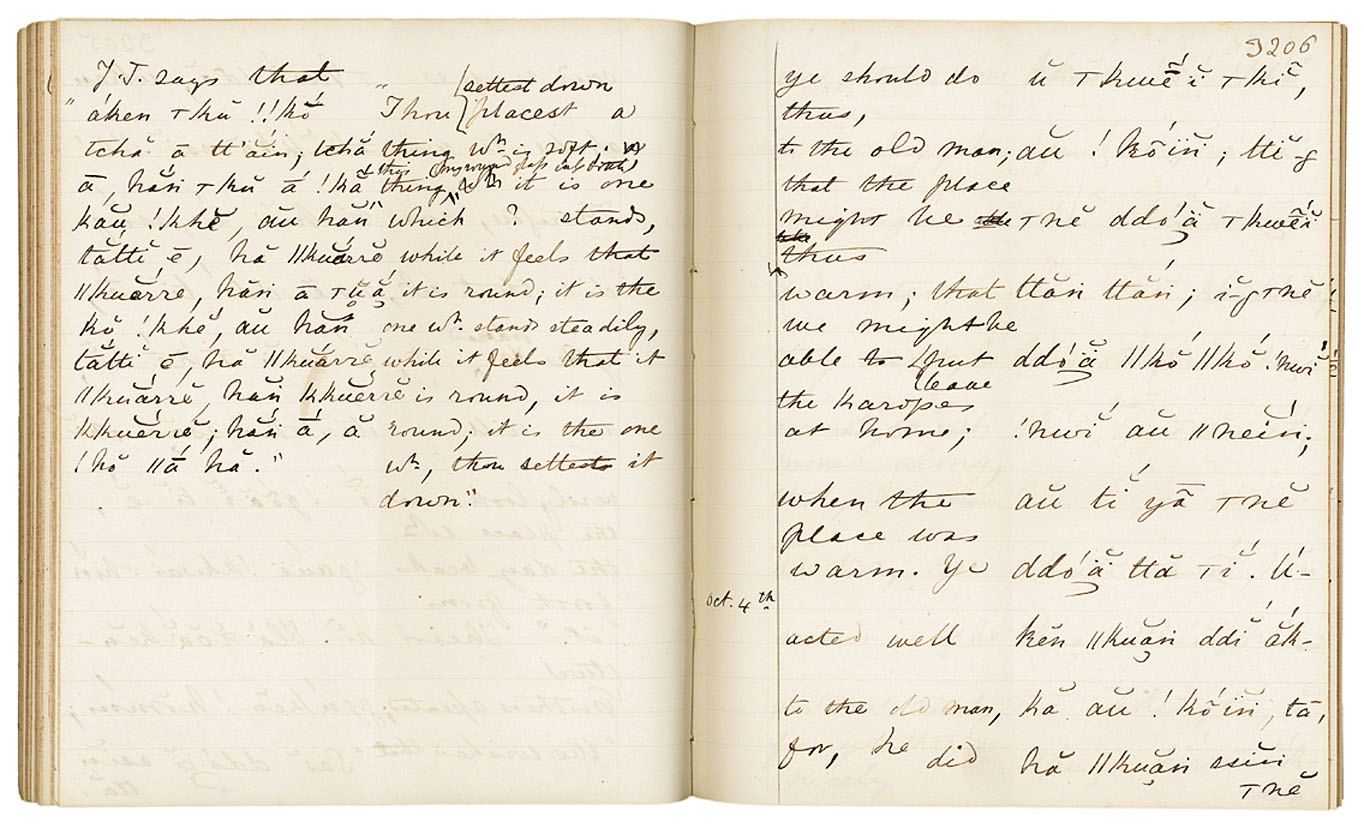 J.T. says that
"áken ⊤kŭ !!kŏ́ "Thou {settest down / placest a
tchă ā tt'ăĭn; tchă thing wh is soft;
ā, hăn ⊤kŭ ā́ !kắ this thing wh it is one
kăŭ !khĕ, au hăn which ? stands,
tăttĭ ē, hă ||kuărrĕ while it feels that
||kuărrĕ, hăn ā it is round; it is the
kŏ !khĕ, au hăn one wh. stands steadily,
tăttĭ ē, hă ||kuărrĕ while it feels that it
||kuărrĕ, hăn kkuĕrrĕ is round, it is
kkuĕrrĕ; hăn ā́, ă round; it is the one
!hŏ ||ā́ hă." wh, thou settest it
down."
3206
ye should do ŭ ⊤kwē̆ ĭ ⊤kĭ,
thus,
to the old man; aŭ !kŏ́ïn; ttĭ-g
that the place
might be ⊤nĕ ddŏ́ă ⊤kwē̆ĭ
thus
warm; that ttăn ttăn; ĭ-g ⊤nĕ
we might be
able to {put / leave ddŏ́ă ||kŏ ||kŏ !nwĭ
the kaross
at home; !nwĭ aŭ ||nĕĭn;
when the aŭ tĭ yā ⊤nĕ
place was
warm. Ye ddŏ́ă ttă ⊤ĭ. Ŭ́-
Oct. 4th
acted well kĕn ||kuăn ddĭ ăk-
to the old man, kă aŭ !kŏ́ïn, tā,
for, he did hă ||kuăn ssĭn
⊤nĕ